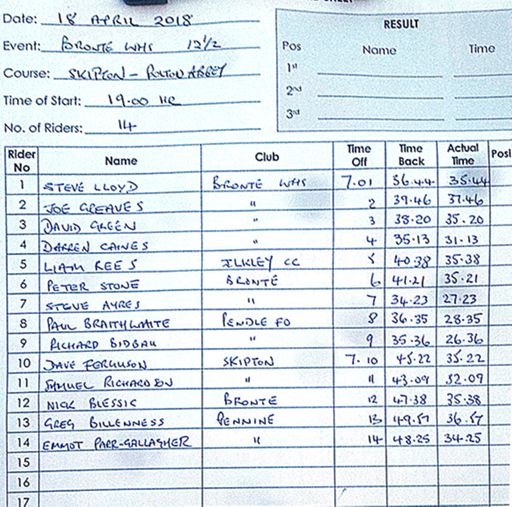 Date: 18 APRIL 2018
Event: BRONTË WHS 12½
Course: SKIPTON - BOLTON ABBEY
Time of Start: 19.00 HR
No. of Riders: 14
RESULT
Pos Name Time
1st
2nd
3rd
Rider No Name Club Time Off Time Back Actual Time Posi
1 STEVE LLOYD BRONTE WHS 7.01 36.44 35.44
2 JOE GREAVES " 2 39.46 37.46
3 DAVID GREEN " 3 38.20 35.20
4 DARREN CAINES " 4 35.13 31.13
5 LIAM REES ILKLEY CC 5 40.38 35.38
6 PETER STONE BRONTË 6 41.21 35.21
7 STEVE AYRES " 7 34.23 27.23
8 PAUL BRAITHWAITE PENDLE FO 8 36.35 28.35
9 RICHARD 9 35.36 26.36
10 DAVE FERGUSON SKIPTON 7.10 45.22 35.22
11 SAMUEL RICHARDSON " 11 43.09 32.09
12 NICK BLESSIC BRONTË 12 47.38 35.38
13 GREG BILLENNESS PENNINE 13 49.57 36.57
14 EMMOT PARR-GALLAGHER " 14 48.25 34.25
15
16
17